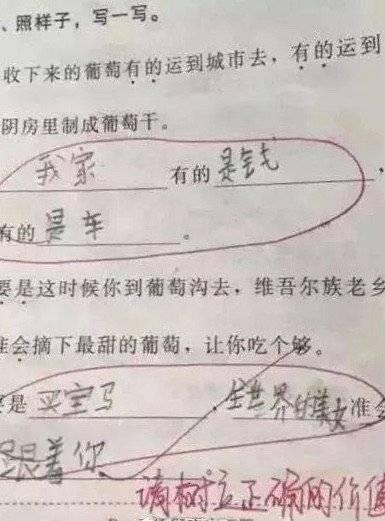 、照样子，写一写。
收下来的葡萄有的运到城市去，有的运到
阴房里制成葡萄干。
我家 有的 是钱 ，
有的 是车 。
要是这时候你到葡萄沟去，维吾尔族老乡
准会摘下最甜的葡萄，让你吃个够。
要是 买宝马 ，全世界的美女 准会
跟着你
请树立正确的价值